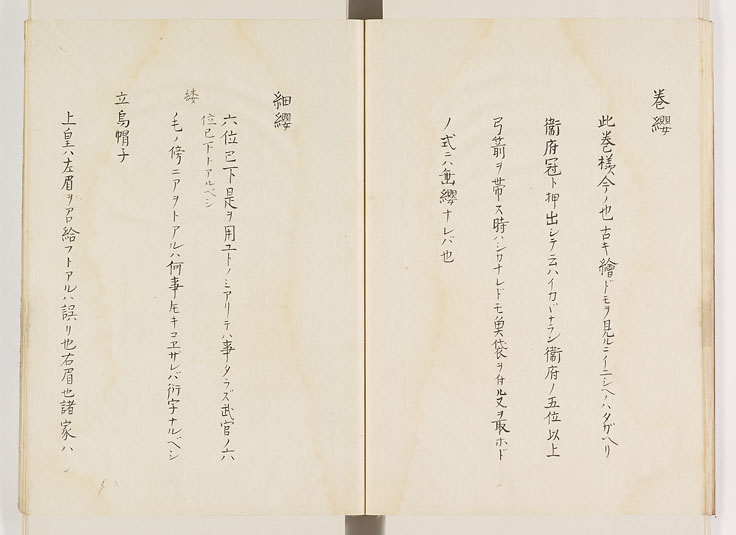 巻纓
此巻様ハ今ノ也古キ繪ドモヲ見ルニイニシヘノハタガヘリ
衞府冠ト押出シテ云ハイカヾナラン衞府ノ五位以上
弓箭ヲ帯ス時ハシカナレドモ魚袋ヲ付ル又ヲ取ホド
ノ式ニハ垂纓ナレバ也
細纓
六位已下是ヲ用ユトノミアリテハ事タラズ武官ノ六
位已下トアルベシ
緌
毛ノ傍ニアヲトアルハ何事トモキコヱザレバ衍字ナルベシ
立烏帽子
上皇ハ左眉ヲ召給フトアルハ誤リ也右眉也諸家ハ